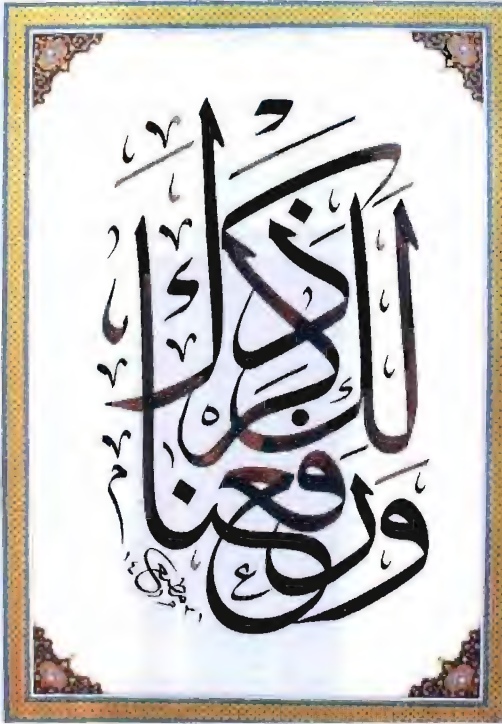 وَرَفَعْنَا لَكَ ذِكْرَكَ